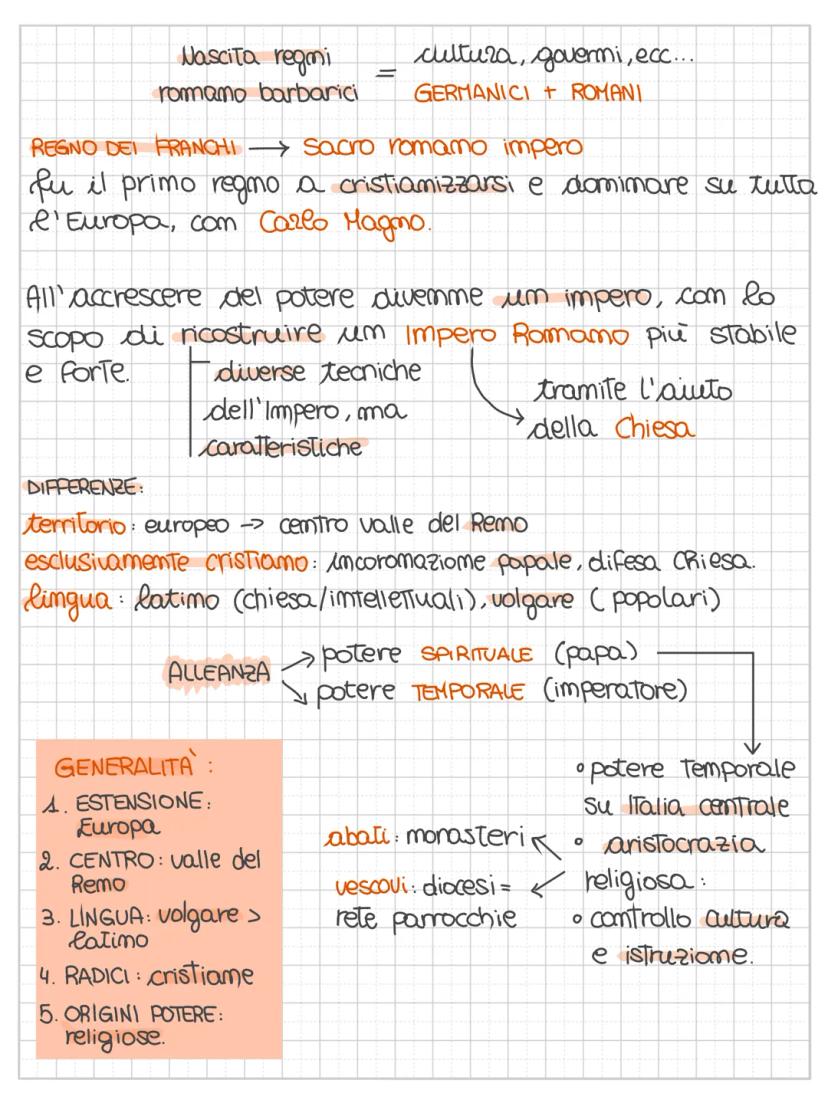 Nascita regni
romano barbarici
=
cultura, governi, ecc...
GERMANICI + ROMANI
REGNO DEI FRANCHI → Sacro romano impero
fu il primo regno a cristianizzarsi e dominare su tutta
l'Europa, con Carlo Magno.
All'accrescere del potere divenne un impero, con lo
scopo di ricostruire un Impero Romano più stabile
e forte.
diverse tecniche
dell'Impero, ma
caratteristiche
tramite l'aiuto
della Chiesa
DIFFERENZE:
territorio: europeo → centro valle del Remo
esclusivamente cristiano: incoronazione papale, difesa Chiesa.
lingua: latino (chiesa/intellettuali), volgare (popolari)
ALLEANZA
potere SPIRITUALE (papa)
potere TEMPORALE (imperatore)
• potere Temporale
su Italia centrale
• aristocrazia
religiosa:
• controllo cultura
e istruzione.
abati: monasteri
vescovi: diocesi =
rete parrocchie
GENERALITÀ:
1. ESTENSIONE:
Europa
2. CENTRO: valle del
Remo
3. LINGUA: volgare >
latino
4. RADICI: cristiane
5. ORIGINI POTERE:
religiose.